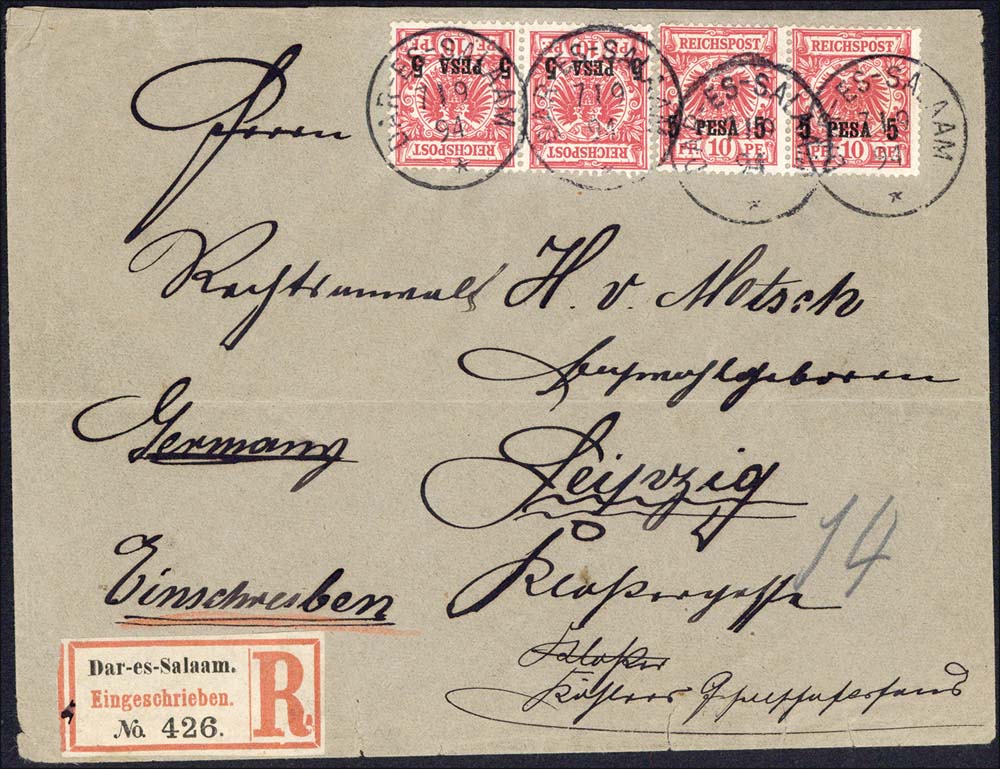 5 PESA 5
5 PESA 5
PF 10 PF
PF 10 PF
REICHSPOST
REICHSPOST
REICHSPOST
REICHSPOST
5 PESA 5
5 PESA 5
PF 10 PF
PF 10 PF
DAR-ES-SALAAM
7 1 9
94
DAR-ES-SALAAM
7 1 9
94
DAR-ES-SALAAM
94
DAR-ES-SALAAM
94
Herrn
Rechtsanwalt H. v. Motsch
Hochwohlgeboren
Germany
Leipzig
14
Einschreiben
Klostergasse
Dar-es-Salaam.
Eingeschrieben.
No. 426.
R